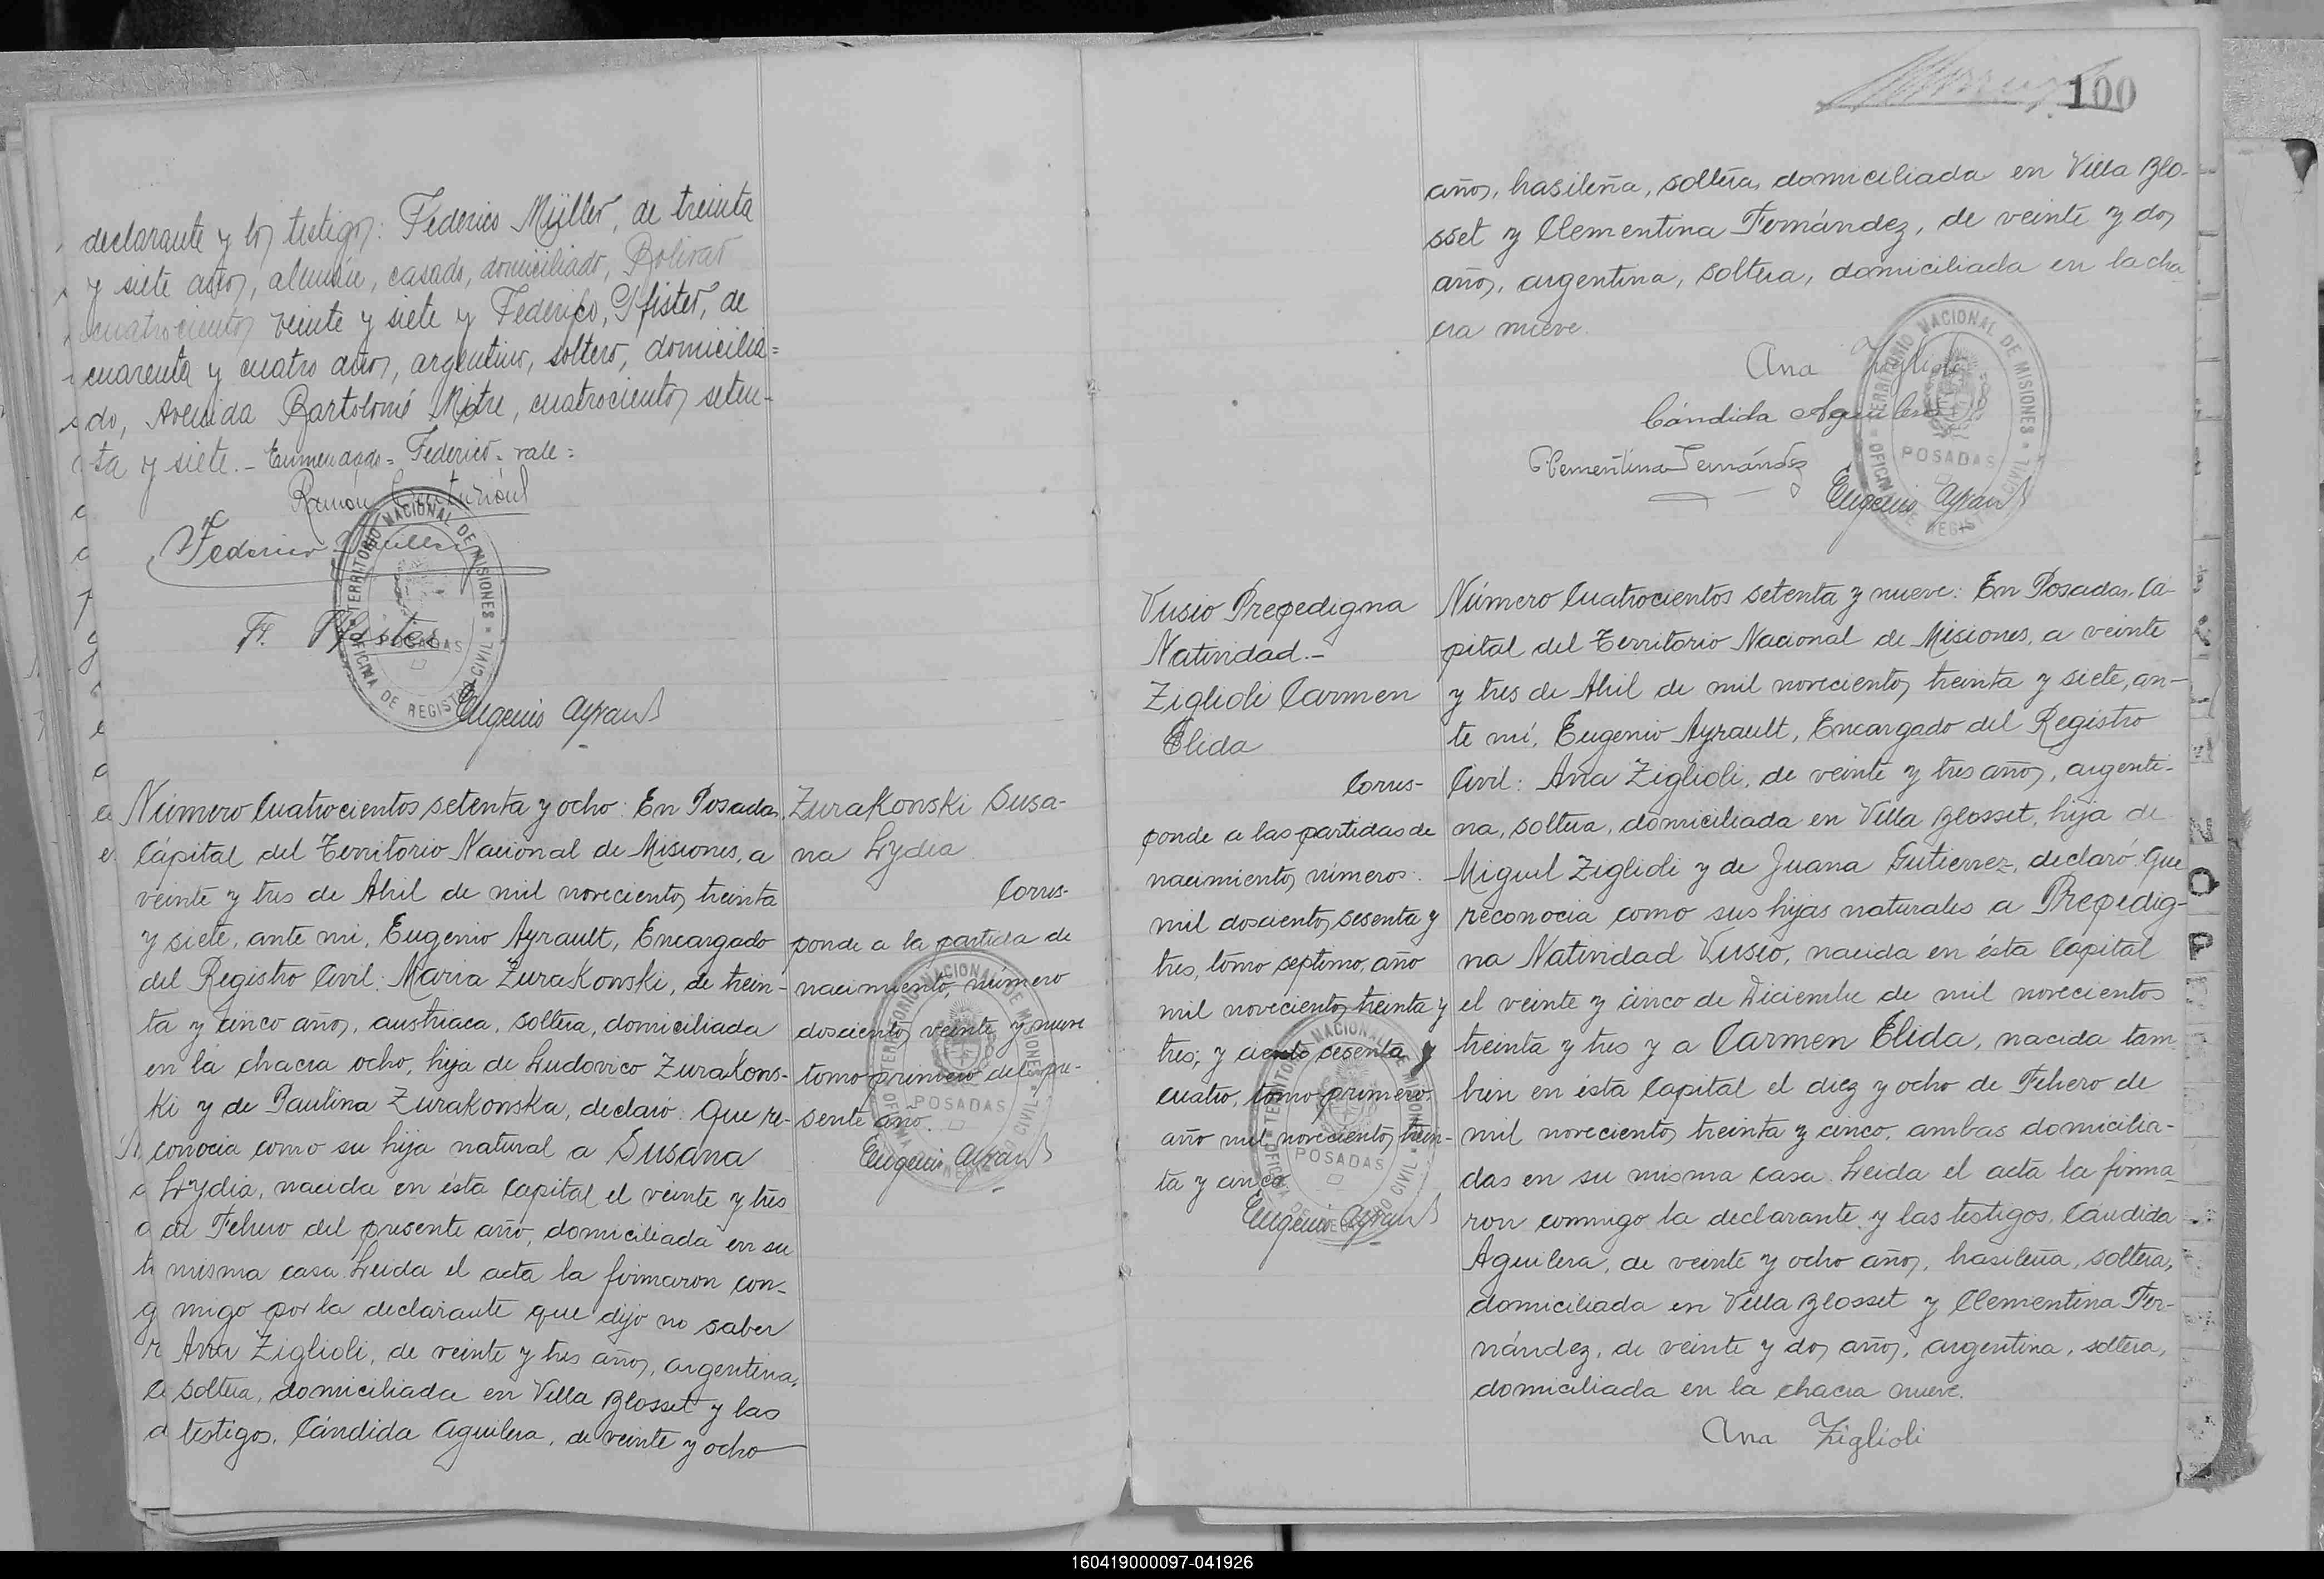 declarante y los testigos: Federico Müller, de treinta
y siete años, alemán, casado, domiciliado, Bolivar
cuatrocientos veinte y siete y Federico, Pfister, de
cuarenta y cuatro años, argentino, soltero, domicilia=
do, Avenida Bartolomé Mitre, cuatrocientos seten-
ta y siete.- Enmendado= Federico= vale=
Ramón
Federico Müller
F. Pfister
TERRITORIO NACIONAL DE MISIONES
POSADAS
OFICINA DE REGISTRO CIVIL
Eugenio Ayrault
Número Cuatrocientos setenta y ocho: En Posadas,
Cápital del Territorio Nacional de Misiones, a
veinte y tres de Abril de mil novecientos treinta
y siete, ante mi, Eugenio Ayrault, Encargado
del Registro Civil: Maria Zurakonski, de trein-
ta y cinco años, austriaca, soltera, domiciliada
en la chacra ocho, hija de Ludovico Zurakons-
ki y de Paulina Zurakonska, declaró: Que re-
conocia como su hija natural a Susana
Lydia, nacida en ésta Capital el veinte y tres
de Febrero del presente año, domiciliada en su
misma casa. Leida el acta la firmaron con-
migo por la declarante que dijo no saber
Ana Ziglioli, de veinte y tres años, argentina,
soltera, domiciliada en Villa Blosset y las
testigos, Cándida Aguilera, de veinte y ocho
Zurakonski Susa-
na Lydia
Corres-
ponde a la partida de
nacimiento, número
doscientos veinte y nueve
tomo primero del pre-
sente año.
TERRITORIO NACIONAL DE MISIONES
POSADAS
OFICINA DE REGISTRO CIVIL
Eugenio Ayrault
100
años, brasileña, soltera, domiciliada en Villa Blo-
sset y Clementina Fernández, de veinte y dos
años, argentina, soltera, domiciliada en la cha
cra nueve.
Ana Ziglioli
Cándida Aguilera
Clementina Fernández
TERRITORIO NACIONAL DE MISIONES
POSADAS
OFICINA DE REGISTRO CIVIL
Eugenio Ayrault
Vusio Prepedigna
Natividad.-
Ziglioli Carmen
Elida
Corres-
ponde a las partidas de
nacimientos números:
mil doscientos sesenta y
tres, tomo septimo, año
mil novecientos treinta y
tres; y ciento sesenta y
cuatro, tomo primero,
año mil novecientos trein-
ta y cinco
TERRITORIO NACIONAL DE MISIONES
POSADAS
OFICINA DE REGISTRO CIVIL
Eugenio Ayrault
Número Cuatrocientos setenta y nueve: En Posadas, Ca-
pital del Territorio Nacional de Misiones, a veinte
y tres de Abril de mil novecientos treinta y siete, an-
te mi, Eugenio Ayrault, Encargado del Registro
Civil: Ana Ziglioli, de veinte y tres años, argenti-
na, soltera, domiciliada en Villa Blosset, hija de
Miguel Ziglioli y de Juana Gutierrez, declaró: Que
reconocia como sus hijas naturales a Prepedig-
na Natividad Vusio, nacida en ésta Capital
el veinte y cinco de Diciembre de mil novecientos
treinta y tres y a Carmen Elida, nacida tam
bien en ésta Capital el diez y ocho de Febrero de
mil novecientos treinta y cinco, ambas domicilia-
das en su misma casa. Leida el acta la firma-
ron conmigo la declarante y las testigos, Cándida
Aguilera, de veinte y ocho años, brasileña, soltera,
domiciliada en Villa Blosset y Clementina Fer-
nández, de veinte y dos años, argentina, soltera,
domiciliada en la chacra nueve.
Ana Ziglioli
160419000097-041926